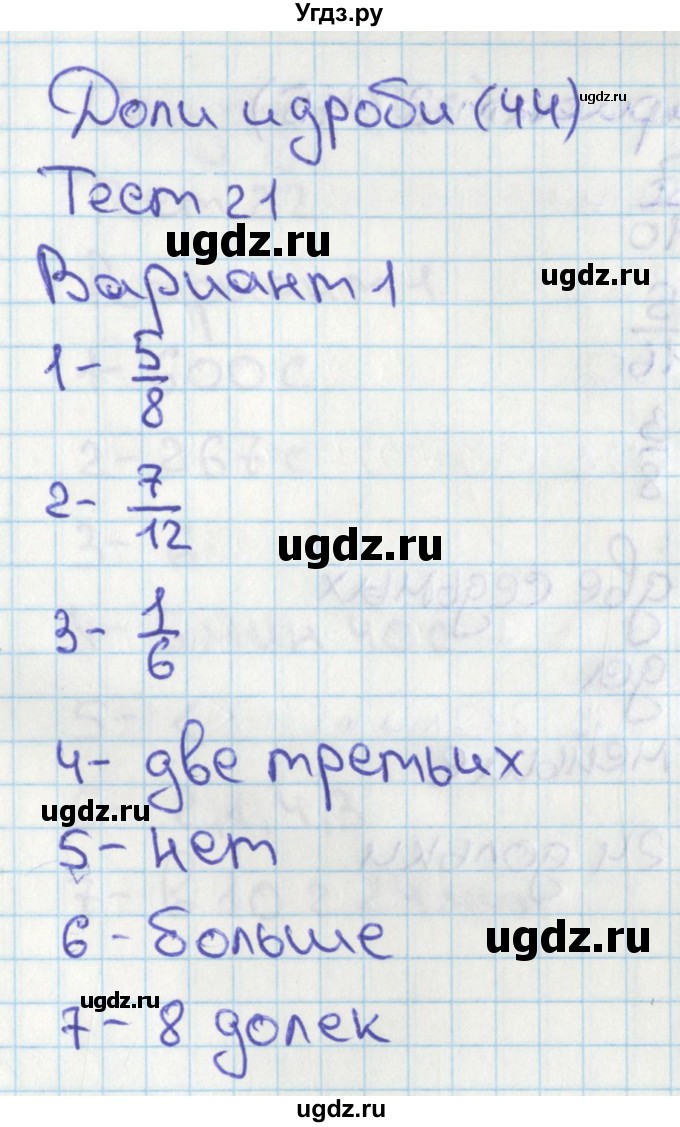 Угдз.ру
Доли и дроби (44)
ugdz.ru
Тест 21
ugdz.ru
Вариант 1
ugdz.ru
1 - 5/8
2 - 7/12
ugdz.ru
3 - 1/6
4 - две третьих
ugdz.ru
5 - нет
6 - больше
ugdz.ru
ugdz.ru
7 - 8 долек
ugdz.ru